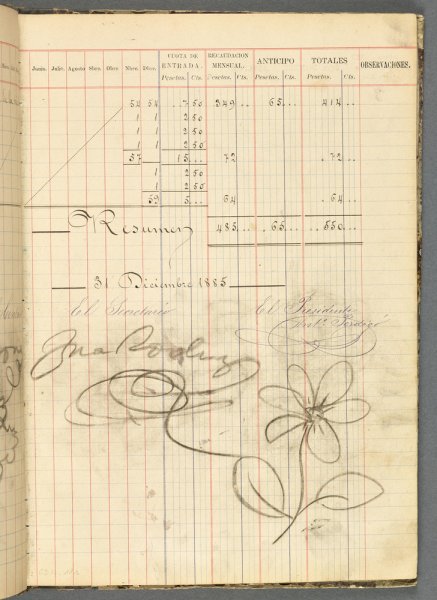 Junio. Julio. Agosto Sbre. Obre Nbre. Dbre. CUOTA DE ENTRADA. Pesetas. Cts. RECAUDACION MENSUAL. Pesetas. Cts. ANTICIPO Pesetas. Cts. TOTALES Pesetas. Cts. OBSERVACIONES.
54 54 7 50 349 65 414
1 1 2 50
1 1 2 50
1 1 2 50
57 15 72 72
1 2 50
1 2 50
59 5 64 64
Resumen 485 65 550
31 Diciembre 1885
El Secretario El Presidente